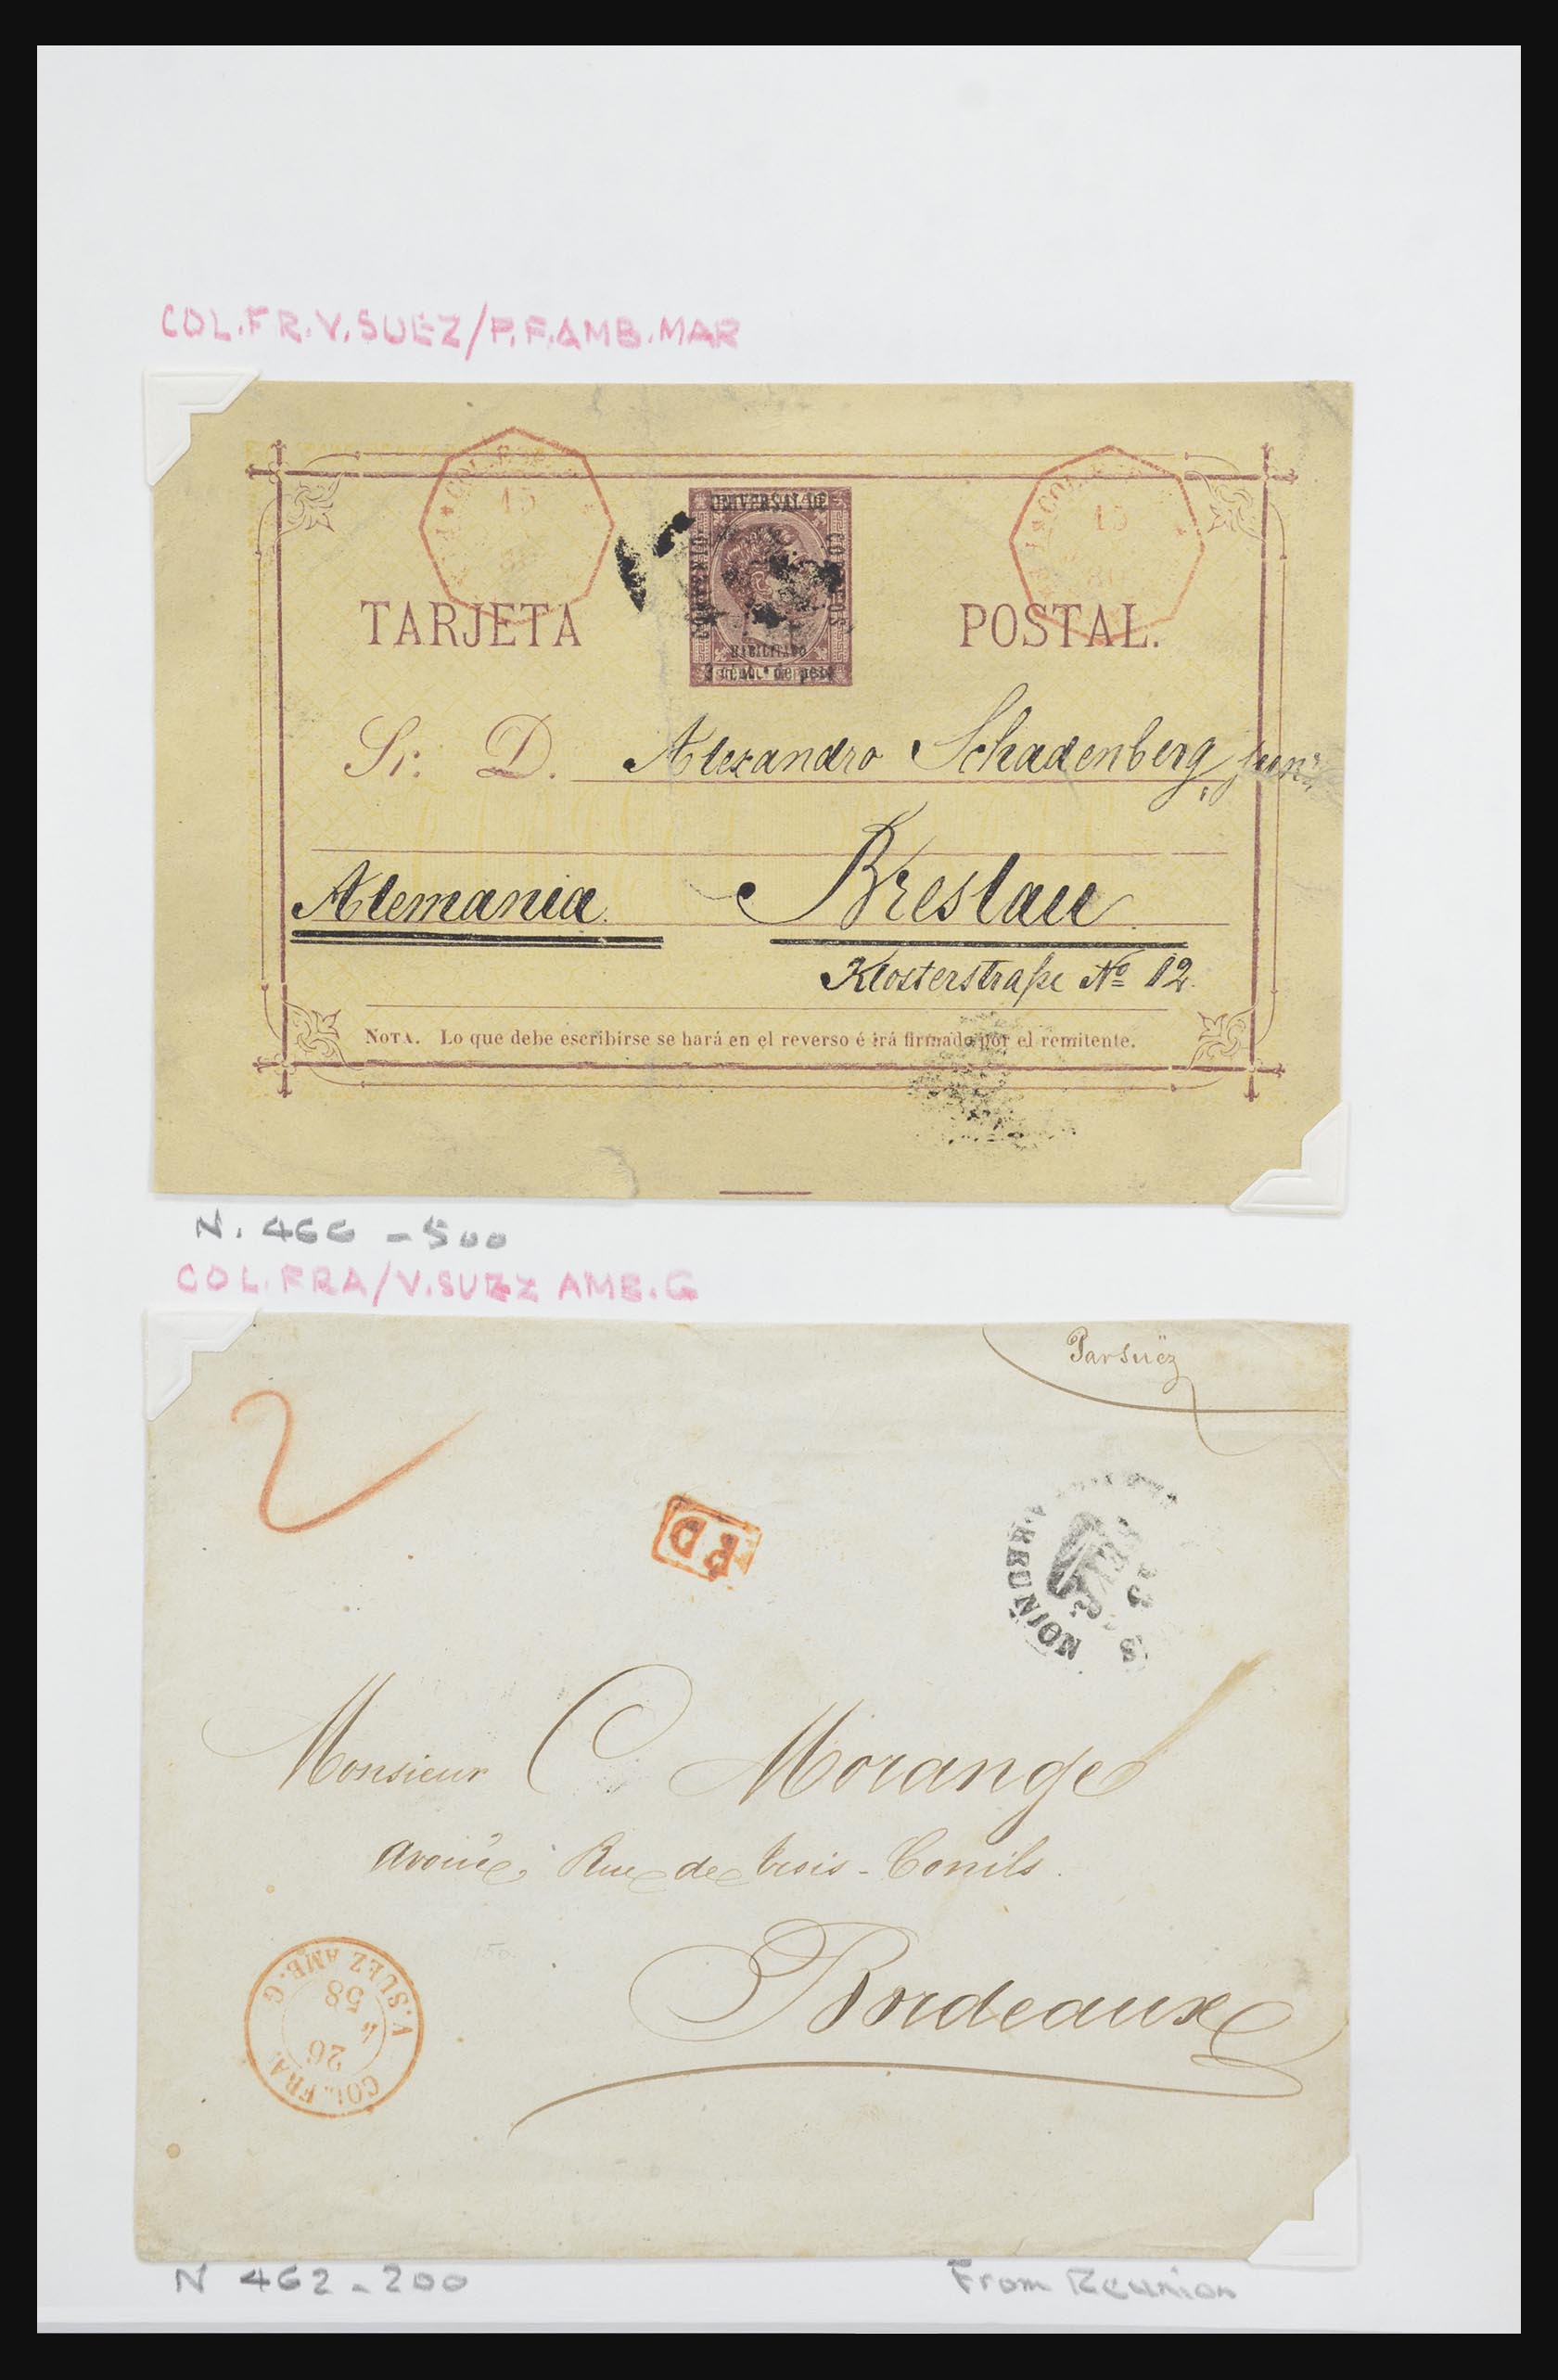 COL.FR.V.SUEZ/P.F.AMB.MAR
COL.
15
80
COL.
15
80
UNIVERSAL DE
CONVENIO
CORREOS
HABILITADO
3 cent.s de peso
TARJETA POSTAL.
Sr. D. Alexandro Schadenberg, junr.
Alemania. Breslau.
Klosterstraße No 12.
NOTA. Lo que debe escribirse se hará en el reverso é irá firmado por el remitente.
N. 466 - 500
COL.FRA/V.SUEZ AMB.G
Par Suëz
2
PD
REUNION
Monsieur C. Morange
avoué, Rue de trois-Conils.
Bordeaux
COL. FRA. V. SUEZ AMB. G
26
58
N 462 - 200
From Reunion